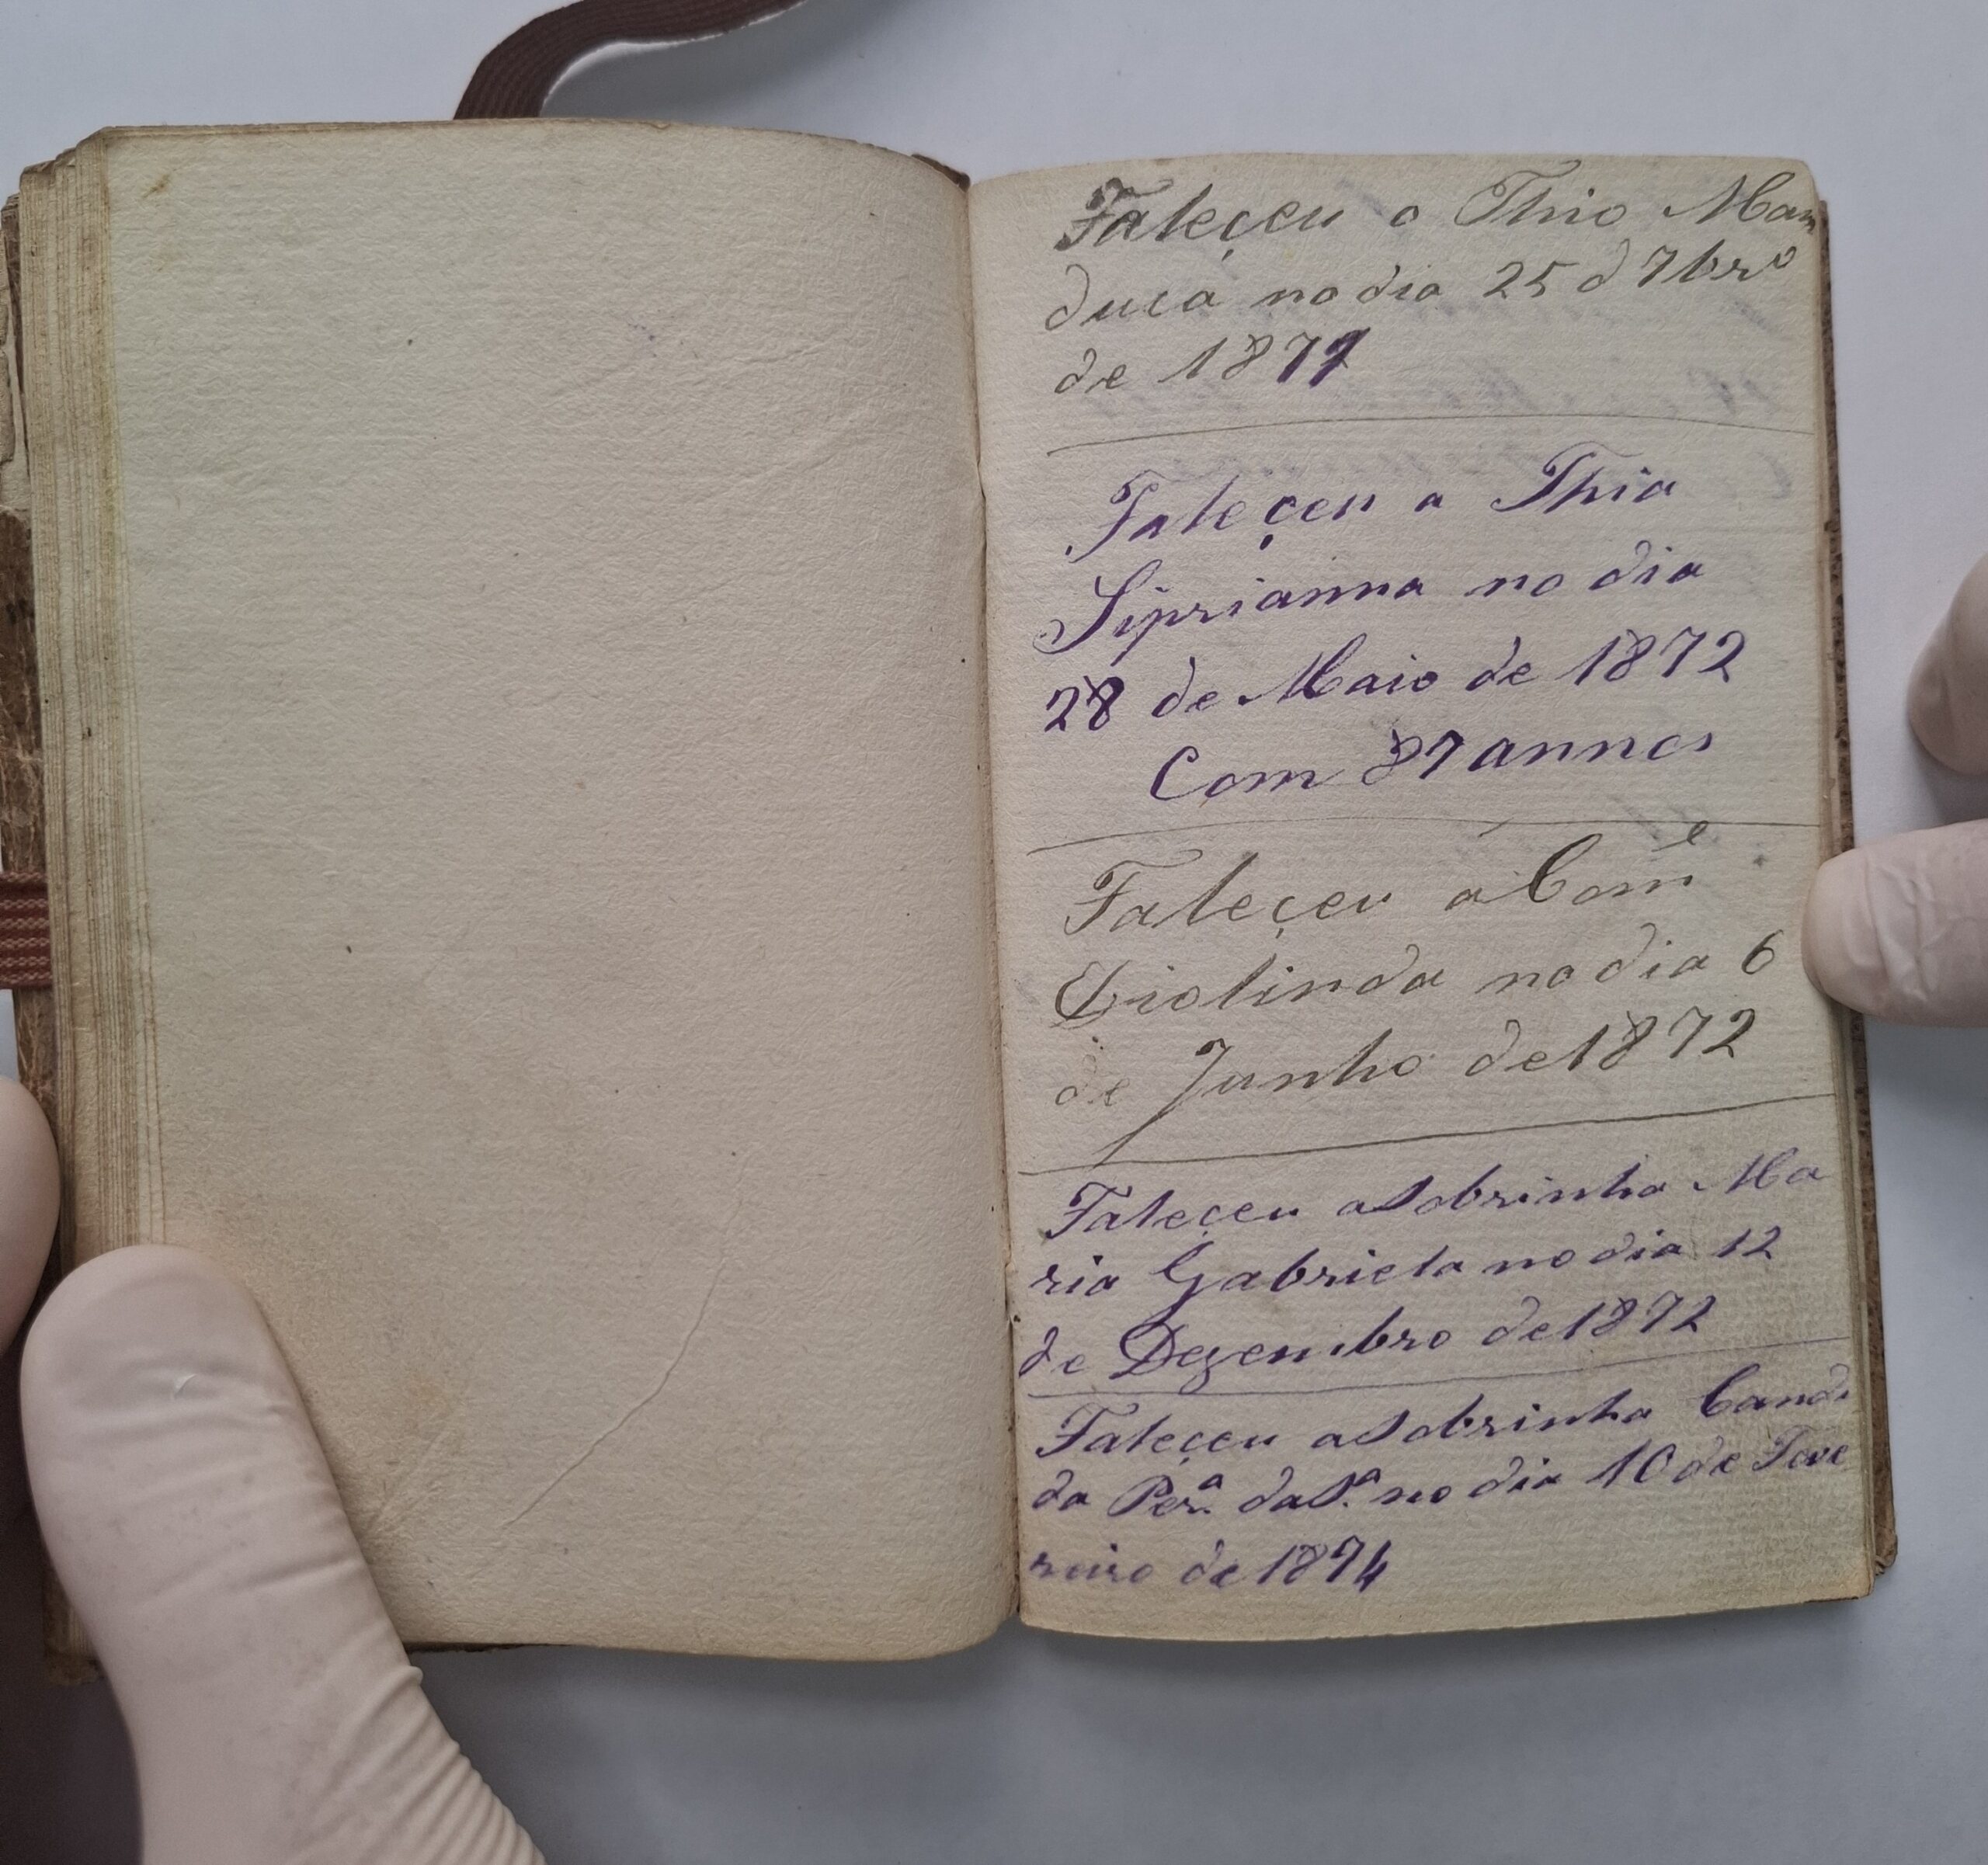 Faleçeu o Thio Man
duca no dia 25 d 7brº
de 1871
Faleçeu a Thia
Siprianna no dia
28 de Maio de 1872
Com 87 annos
Faleçeu a Comᵉ
Diolinda no dia 6
de Junho de 1872
Faleçeu a Sobrinha Ma
ria Gabriela no dia 12
de Dezembro de 1872
Faleçeu a Sobrinha Candi
da Perª. da Sª. no dia 10 de Feve
reiro de 1874